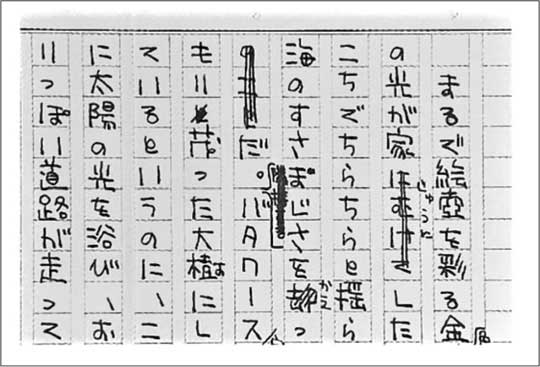 まるで絵壺を彩る金属
の光が家じゅうにした
こちでちらちらと揺ら
海のすさまじさを
だ。バタワース
もリと茂った大樹にし
ているというのに、こ
に太陽の光を浴び、お
リっぽい道路が走って